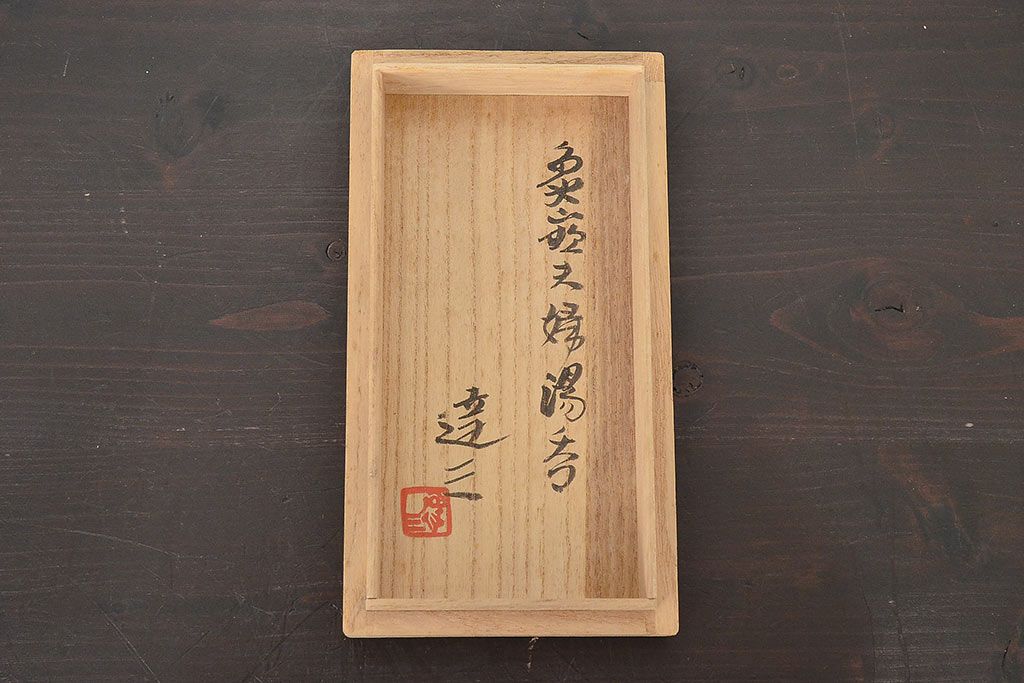 象嵌夫婦湯呑
達三